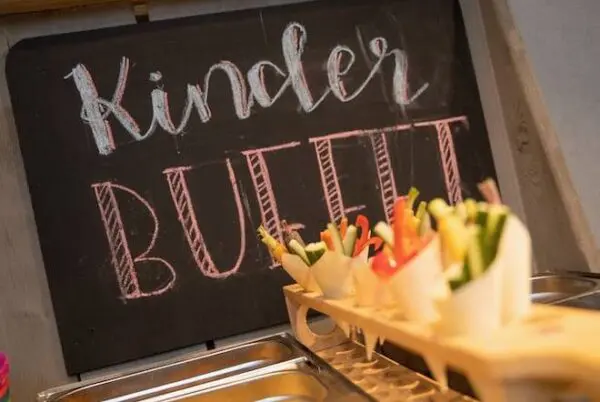 Kinder
BUFFET